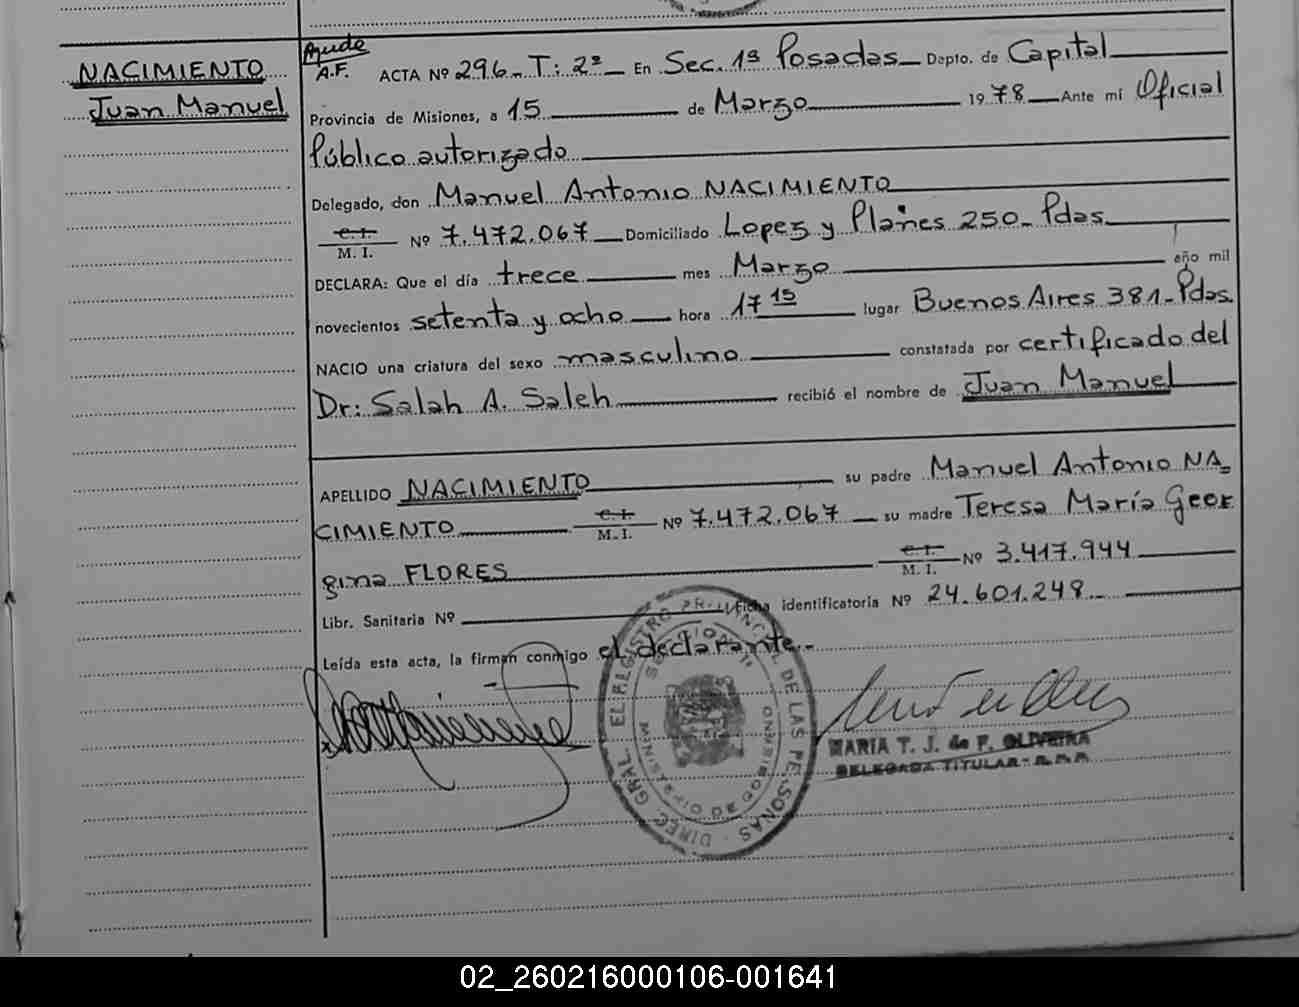 NACIMIENTO
Juan Manuel
Ayude
A.F. ACTA Nº 296 - T: 2º En Sec. 1ª Posadas Depto. de Capital
Provincia de Misiones, a 15 de Marzo 1978 Ante mí Oficial
Público autorizado
Delegado, don Manuel Antonio NACIMIENTO
C.I. M.I. Nº 7.472.067 Domiciliado Lopez y Planes 250 - Pdas
DECLARA: Que el día trece mes Marzo año mil
novecientos setenta y ocho hora 17 15 lugar Buenos Aires 381 - Pdas.
NACIO una criatura del sexo masculino constatada por certificado del
Dr: Salah A. Saleh recibió el nombre de Juan Manuel
APELLIDO NACIMIENTO su padre Manuel Antonio NA-
CIMIENTO C.I. M.I. Nº 7.472.067 su madre Teresa María Geor
gina FLORES C.I. M.I. Nº 3.417.944
Libr. Sanitaria Nº Ficha identificatoria Nº 24.601.248 -
Leída esta acta, la firman conmigo el declarante. -
DIREC. GRAL. EL REGISTRO PROVINCIAL DE LAS PERSONAS
MINISTERIO DE GOBIERNO
MARIA T. J. de F. OLIVEIRA
DELEGADA TITULAR - R.P.P.
02_260216000106-001641